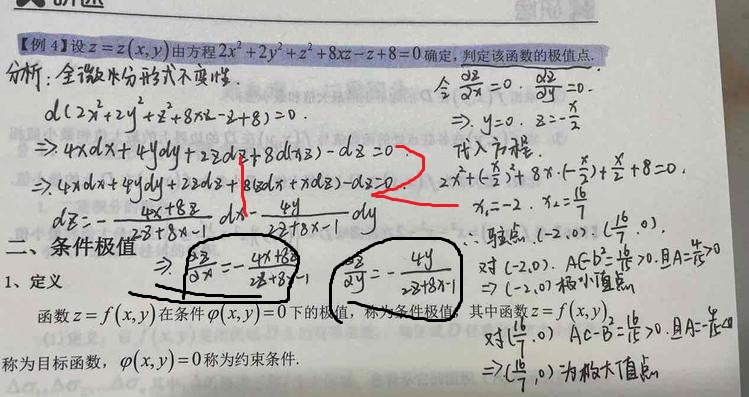 【例4】设z=z(x,y)由方程2x²+2y²+z²+8xz-z+8=0确定,判定该函数的极值点.
分析:全微分形式不变性.
d(2x²+2y²+z²+8xz-z+8)=0.
⇒4xdx+4ydy+2zdz+8d(xz)-dz=0.
⇒.4xdx+4ydy+2zdz+8(zdx+xdz)-dz=0.
dz=-\frac{4x+8z}{2z+8x-1}dx-\frac{4y}{2z+8x-1}dy
⇒\frac{∂z}{∂x}=-\frac{4x+8z}{2z+8x-1} \frac{∂z}{∂y}=-\frac{4y}{2z+8x-1}
令\frac{∂z}{∂x}=0.\frac{∂z}{∂y}=0.
⇒y=0.z=-\frac{x}{2}
代入方程.
2x²+(-\frac{x}{2})²+8x·(-\frac{x}{2})+\frac{x}{2}+8=0.
x₁=-2.x₂=\frac{16}{7}
∴驻点(-2,0).(\frac{16}{7},0).
对(-2,0).AC-B²=\frac{16}{15}>0.且A=\frac{4}{15}>0
⇒(-2,0)极小值点
对(\frac{16}{7},0)AC-B²=\frac{16}{15}>0.且A=-\frac{4}{15}<0
⇒(\frac{16}{7},0)为极大值点
二、条件极值
1、定义
函数z=f(x,y)在条件φ(x,y)=0下的极值,称为条件极值,其中函数z=f(x,y)
称为目标函数,φ(x,y)=0称为约束条件.